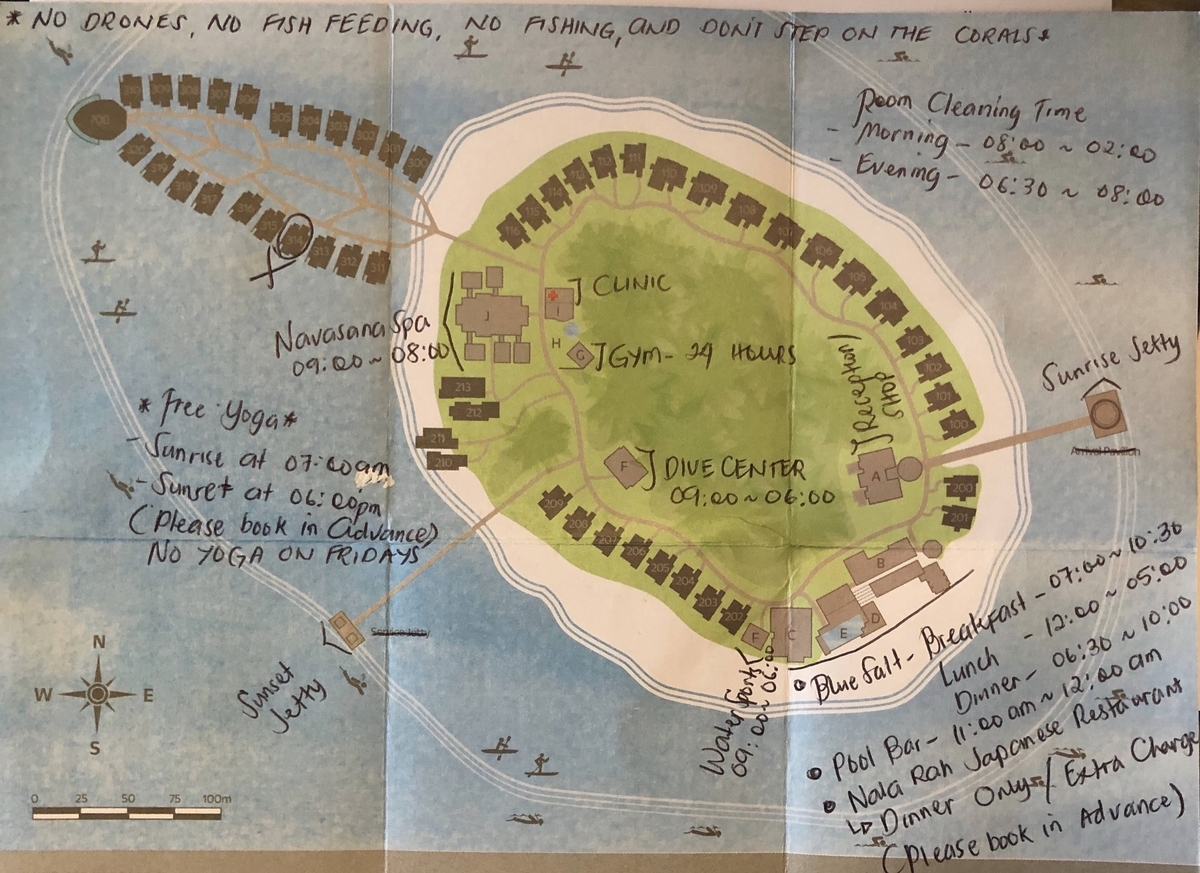 * NO DRONES, NO FISH FEEDING, NO FISHING, AND DON'T STEP ON THE CORALS *
Room Cleaning Time
- Morning - 08:00 ~ 02:00
- Evening - 06:30 ~ 08:00
700
310
309
308
307
306
305
304
303
302
301
300
320
319
318
317
316
315
314
313
312
311
116
115
114
113
112
111
110
109
108
107
106
105
104
103
102
101
100
J
I
CLINIC
H
G
GYM - 24 HOURS
Navasana Spa
09:00 ~ 08:00
Reception/
Shop
Sunrise Jetty
Arrival Pavilion
213
212
211
210
* free Yoga *
- Sunrise at 07:00am
- Sunset at 06:00pm
(Please book in Advance)
NO YOGA ON FRIDAYS
F
DIVE CENTER
09:00 ~ 06:00
A
200
201
209
208
207
206
205
204
203
202
B
C
D
E
F
Service Jetty
Sunset
Jetty
Water Sports
09:00 ~ 06:00
• Blue Salt - Breakfast - 07:00 ~ 10:30
Lunch - 12:00 ~ 05:00
Dinner - 06:30 ~ 10:00
• Pool Bar - 11:00 am ~ 12:00 am
• Nala Rah Japanese Restaurant
↳ Dinner Only / Extra Charge
(Please book in Advance)
N
W
E
S
0 25 50 75 100m